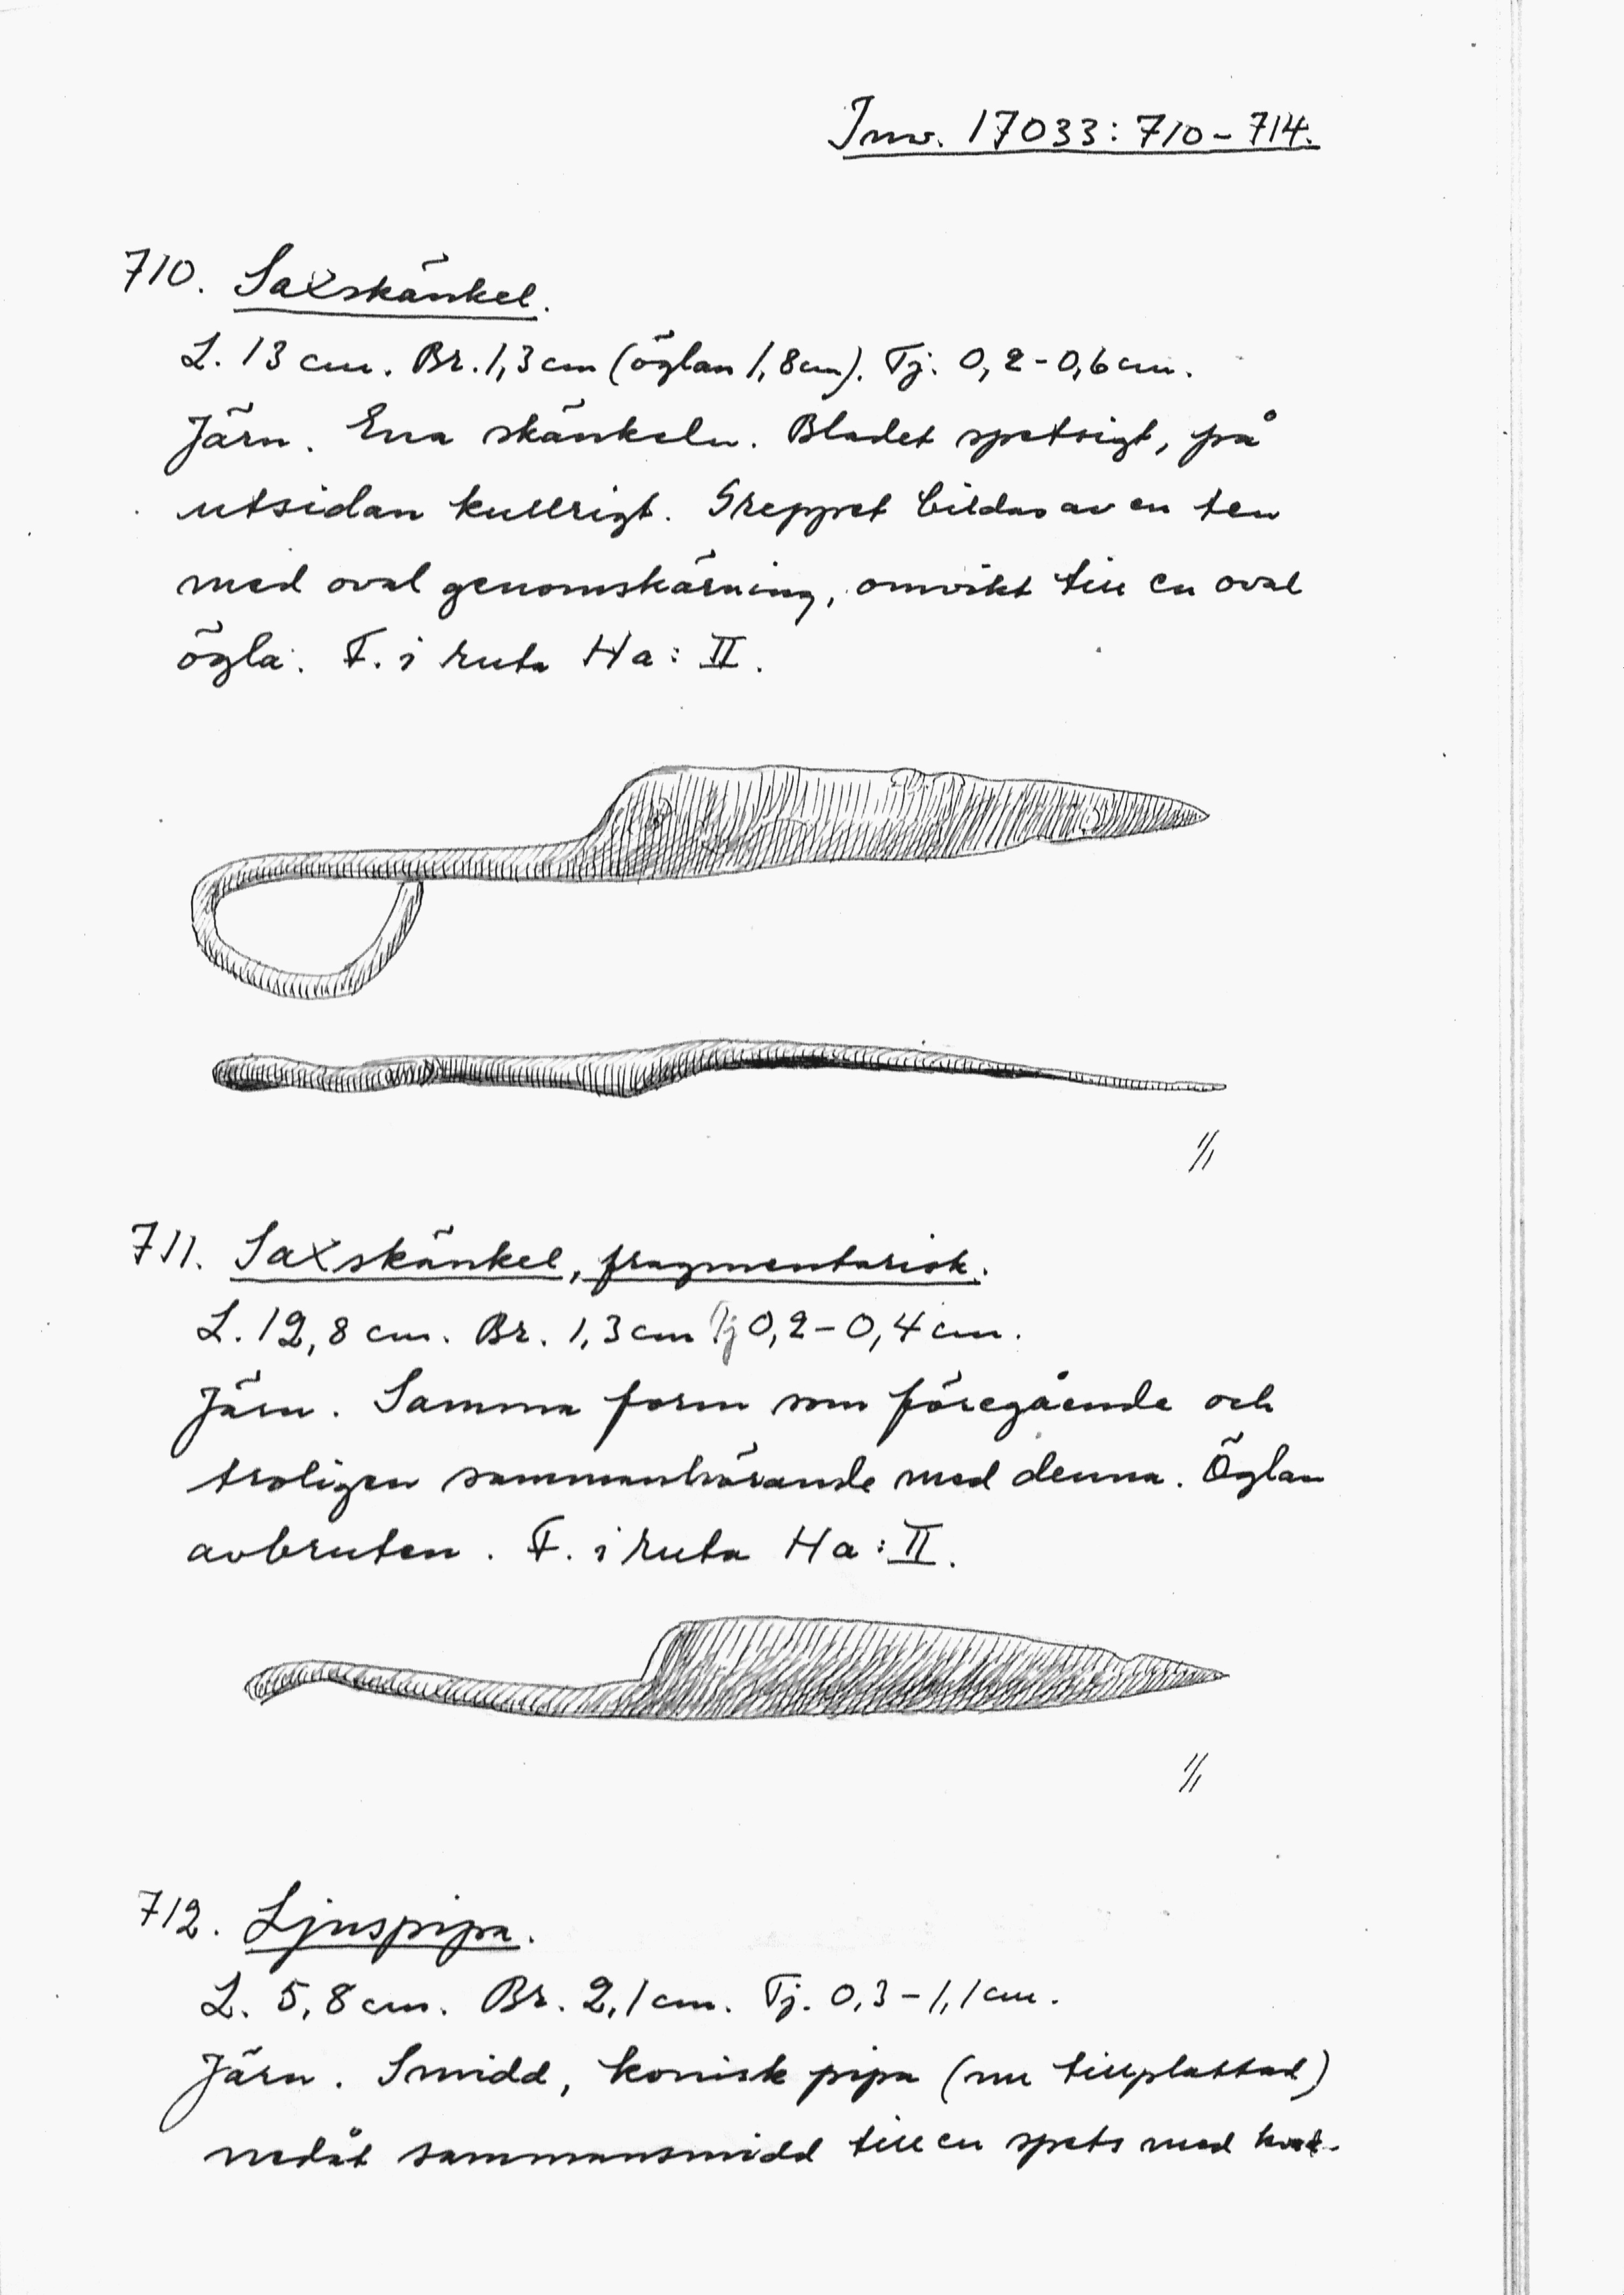 Inv. 17033:710-714.
710. Saxskänkel.
L. 13 cm. Br. 1,3 cm (öglan 1,8 cm). Tj. 0,2-0,6 cm.
Järn. Ena skänkeln. Bladet spetsigt, på
utsidan kullrigt. Greppet bildas av en ten
med oval genomskärning, omvikt till en oval
ögla. F. i ruta Ha: II.
1/1
711. Saxskänkel, fragmentarisk.
L. 12,8 cm. Br. 1,3 cm Tj 0,2-0,4 cm.
Järn. Samma form som föregående och
troligen sammanhörande med denna. Öglan
avbruten. F. i ruta Ha: II.
1/1
712. Ljuspipa.
L. 5,8 cm. Br. 2,1 cm. Tj. 0,3-1,1 cm.
Järn. Smidd, konisk pipa (nu tillplattad)
nedåt sammansmidd till en spets med kvad-